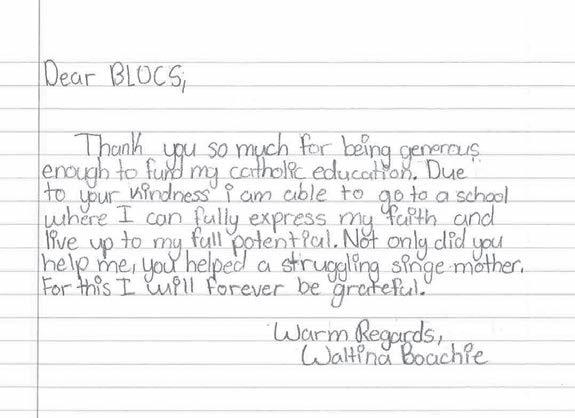 Dear BLOCS,
Thank you so much for being generous
enough to fund my catholic education. Due
to your kindness i am able to go to a school
where I can fully express my faith and
live up to my full potential. Not only did you
help me, you helped a struggling singe mother.
For this I will forever be grateful.
Warm Regards,
Waltina Boachie